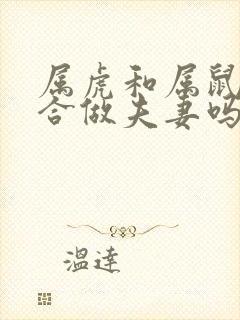 属虎和属鼠
合做夫妻吗
温達